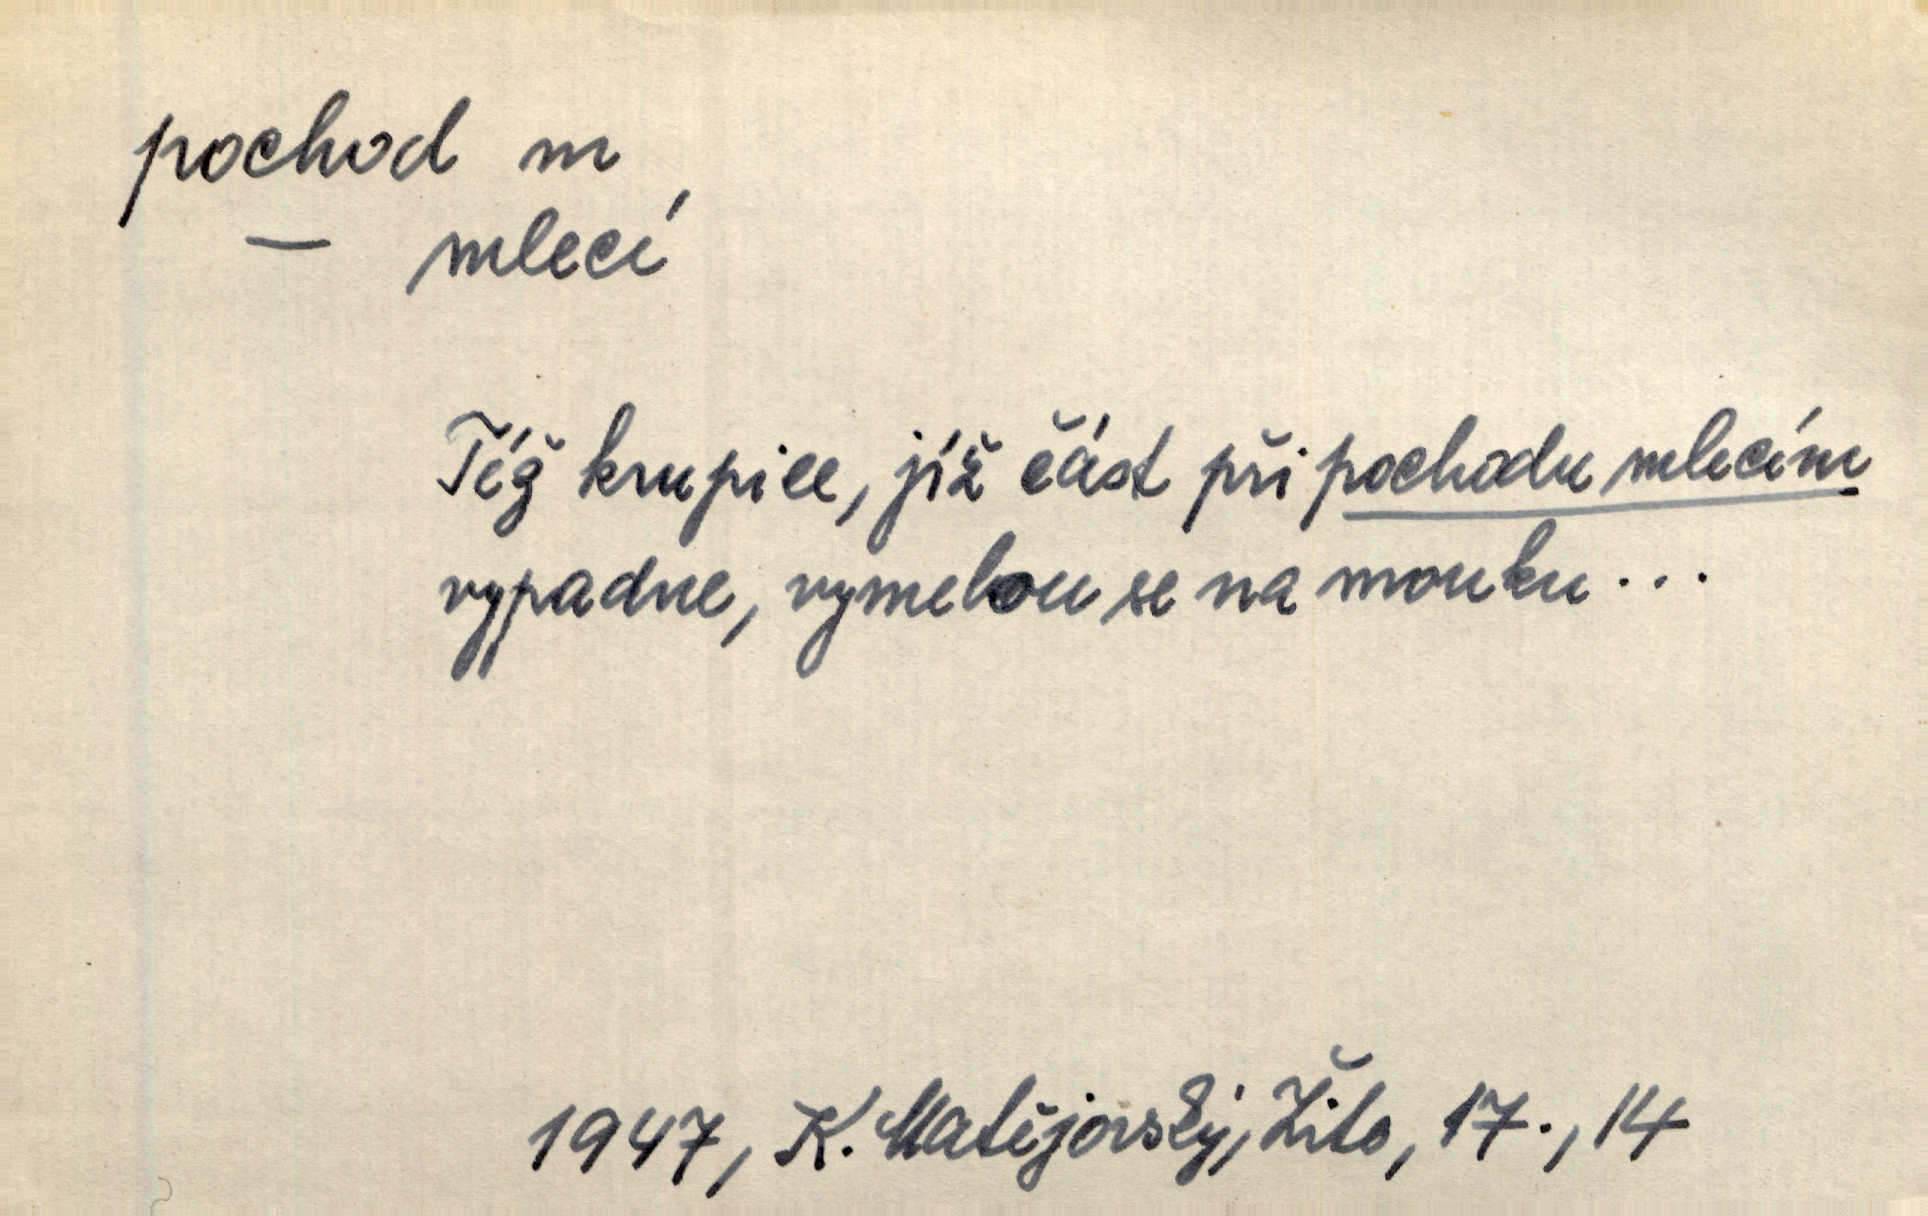 pochod m
— mlecí
Též krupice, již část při pochodu mlecím
vypadne, vymelou se na mouku...
1947, K. Matějovský, Žito, 17., 14